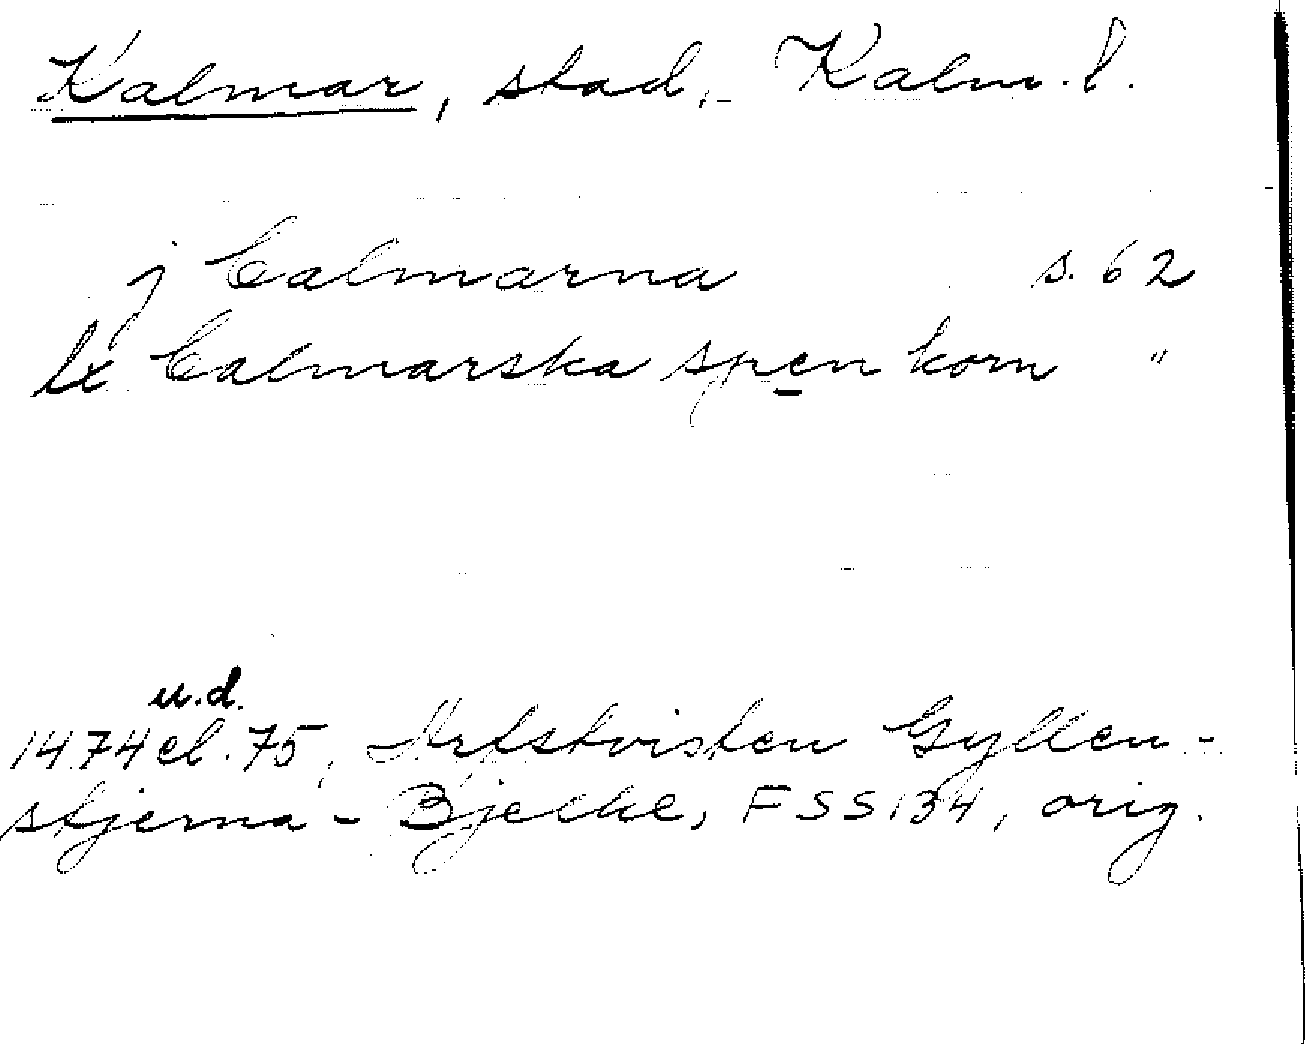 Kalmar, stad, Kalm. l.
j Calmarna s. 62
lx Calmarska spen korn "
u.d.
1474 el. 75, Arfstvisten Gyllen-
stjerna - Bjelke, FSS 134, orig.